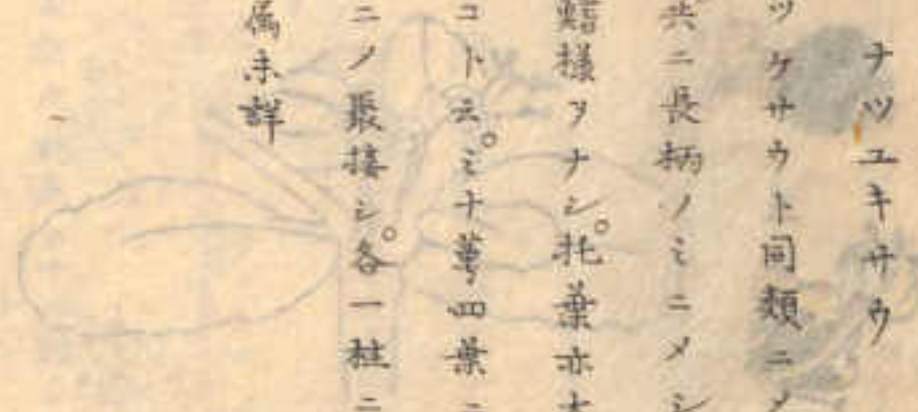 ナツユキサウ
ツケサウト同類ニメ
共ニ長柄ノミニメシ
鱛様ヲナシ。托葉亦大
コト云。ミナ萼四葉ニ
ニノ聚接シ。各一柱ニ
属未詳